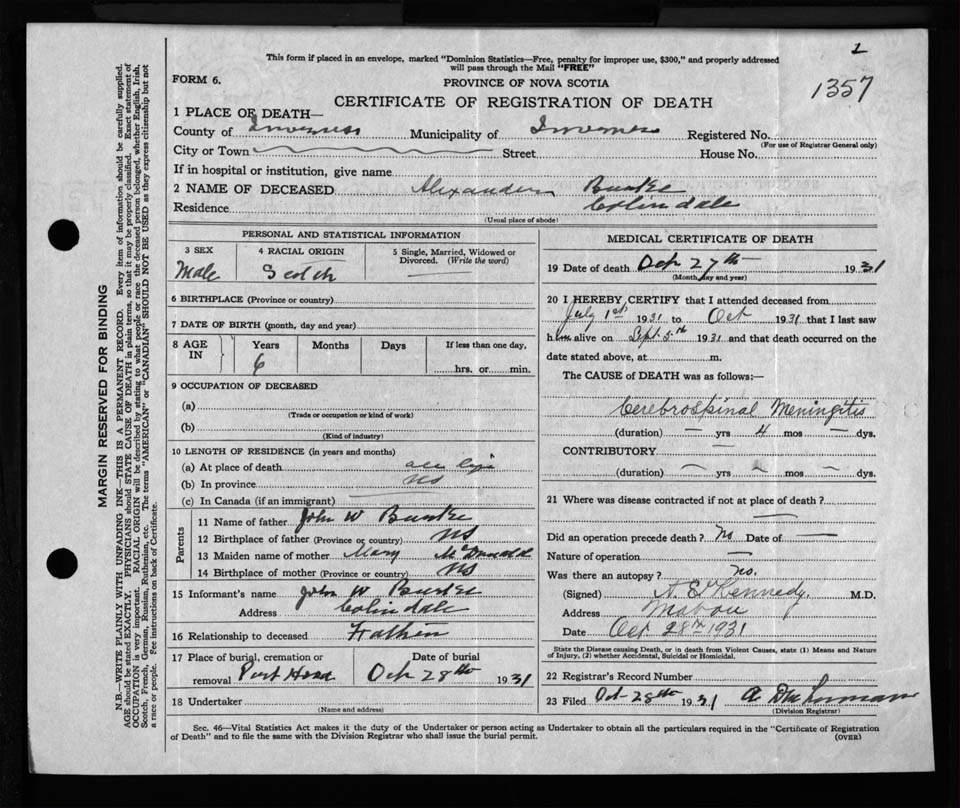 1
This form if placed in an envelope, marked "Dominion Statistics—Free, penalty for improper use, $300," and properly addressed
will pass through the Mail "FREE"
1357
FORM 6.
PROVINCE OF NOVA SCOTIA
CERTIFICATE OF REGISTRATION OF DEATH
1 PLACE OF DEATH—
County of Inverness Municipality of Inverness Registered No.
(For use of Registrar General only)
City or Town Street House No.
If in hospital or institution, give name
2 NAME OF DECEASED Alexander Burke
Residence Colindale
(Usual place of abode)
PERSONAL AND STATISTICAL INFORMATION
3 SEX 4 RACIAL ORIGIN 5 Single, Married, Widowed or
Divorced. (Write the word)
Male Scotch —
6 BIRTHPLACE (Province or country)
7 DATE OF BIRTH (month, day and year)
8 AGE IN Years Months Days If less than one day,
6 hrs. or min.
9 OCCUPATION OF DECEASED
(a)
(Trade or occupation or kind of work)
(b)
(Kind of industry)
10 LENGTH OF RESIDENCE (in years and months)
(a) At place of death all life
(b) In province NS
(c) In Canada (if an immigrant)
Parents
11 Name of father John W Burke
12 Birthplace of father (Province or country) NS
13 Maiden name of mother Mary McDonald
14 Birthplace of mother (Province or country) NS
15 Informant's name John W. Burke
Address Colindale
16 Relationship to deceased Father
17 Place of burial, cremation or Date of burial
removal Port Hood Oct 28th 1931
18 Undertaker
(Name and address)
MEDICAL CERTIFICATE OF DEATH
19 Date of death Oct 27th 1931
(Month, day and year)
20 I HEREBY CERTIFY that I attended deceased from
July 1st 1931 to Oct 1931 that I last saw
him alive on Sept 5th 1931 and that death occurred on the
date stated above, at m.
The CAUSE of DEATH was as follows:—
Cerebrospinal Meningitis
(duration) — yrs 4 mos — dys.
CONTRIBUTORY —
(duration) — yrs — mos — dys.
21 Where was disease contracted if not at place of death?
—
Did an operation precede death? No Date of —
Nature of operation —
Was there an autopsy? No.
(Signed) Kennedy M.D.
Address Mabou
Date Oct 28th 1931
State the Disease causing Death, or in death from Violent Causes, state (1) Means and Nature
of Injury, (2) whether Accidental, Suicidal or Homicidal.
22 Registrar's Record Number
23 Filed Oct 28th 1931
(Division Registrar)
Sec. 46—Vital Statistics Act makes it the duty of the Undertaker or person acting as Undertaker to obtain all the particulars required in the "Certificate of Registration
of Death" and to file the same with the Division Registrar who shall issue the burial permit.
(OVER)
MARGIN RESERVED FOR BINDING
N.B.—WRITE PLAINLY WITH UNFADING INK—THIS IS A PERMANENT RECORD. Every item of information should be carefully supplied.
AGE should be stated EXACTLY. PHYSICIANS should STATE CAUSE OF DEATH in plain terms, so that it may be properly classified. Exact statement of
OCCUPATION is very important. RACIAL ORIGIN will be described by stating to what people or race the deceased person belonged, whether English, Irish,
Scotch, French, German, Russian, Ruthenian, etc. The terms "AMERICAN" or "CANADIAN" SHOULD NOT BE USED as they express citizenship but not
a race or people. See instructions on back of Certificate.